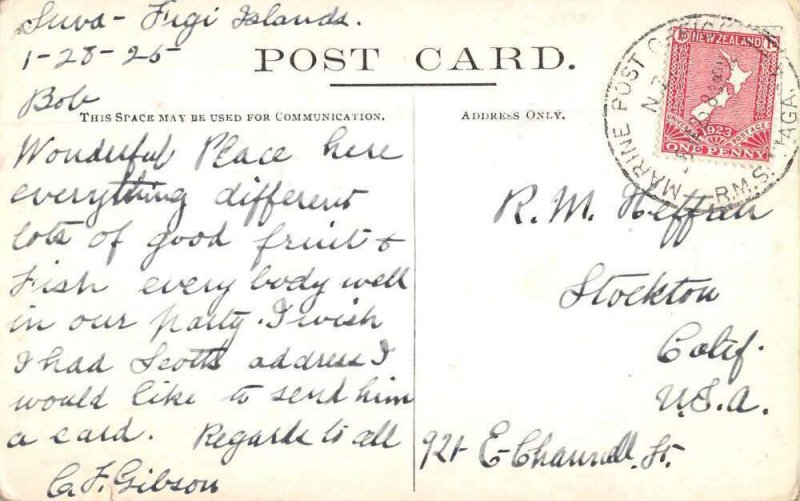 Suva - Figi Islands.
1-28-25
POST CARD.
Bob
THIS SPACE MAY BE USED FOR COMMUNICATION.
Wonderful Place here
everything different
lots of good fruit &
Fish every body well
in our party. I wish
I had Scotts address I
would like to send him
a card. Regards to all
C. F. Gibson
ADDRESS ONLY.
R. M. Heffren
Stockton
Calif.
U.S.A.
921 E- Channell. St.
NEW ZEALAND
1D 1D
1923
POSTAGE
ONE PENNY
MARINE POST OFFICE
N.Z.
R.M.S.